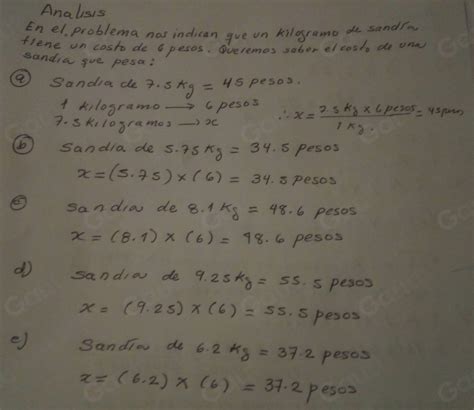 Analisis
En el, problema nos indican que un Kilogramo de sandía
tiene un costo de 6 pesos. Queremos saber el costo de una
sandia que pesa:
a) Sandia de 7.5 Kg = 45 pesos.
1 kilogramo → 6 pesos
7.5 kilogramos → x
∴ x = 7.5 Kg x 6 pesos / 1 Kg. = 45 pesos
b) Sandia de 5.75 Kg = 34.5 pesos
x = (5.75) x (6) = 34.5 pesos
c) Sandia de 8.1 Kg = 48.6 pesos
x = (8.1) x (6) = 48.6 pesos
d) Sandia de 9.25 Kg = 55.5 pesos
x = (9.25) x (6) = 55.5 pesos
e) Sandía de 6.2 Kg = 37.2 pesos
x = (6.2) x (6) = 37.2 pesos